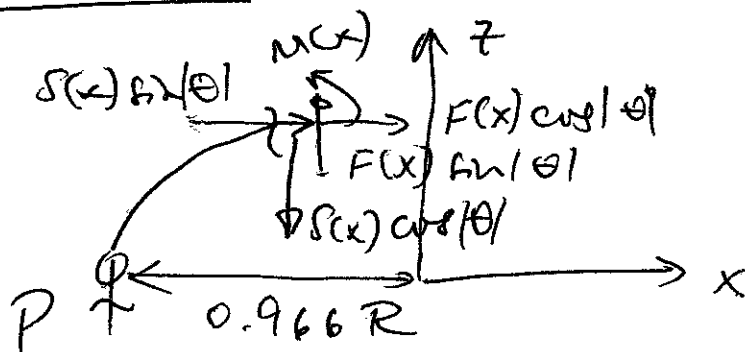 M(x)
z
S(x) sin|θ|
F(x) cos|θ|
F(x) sin|θ|
S(x) cos|θ|
P
0.966 R
x